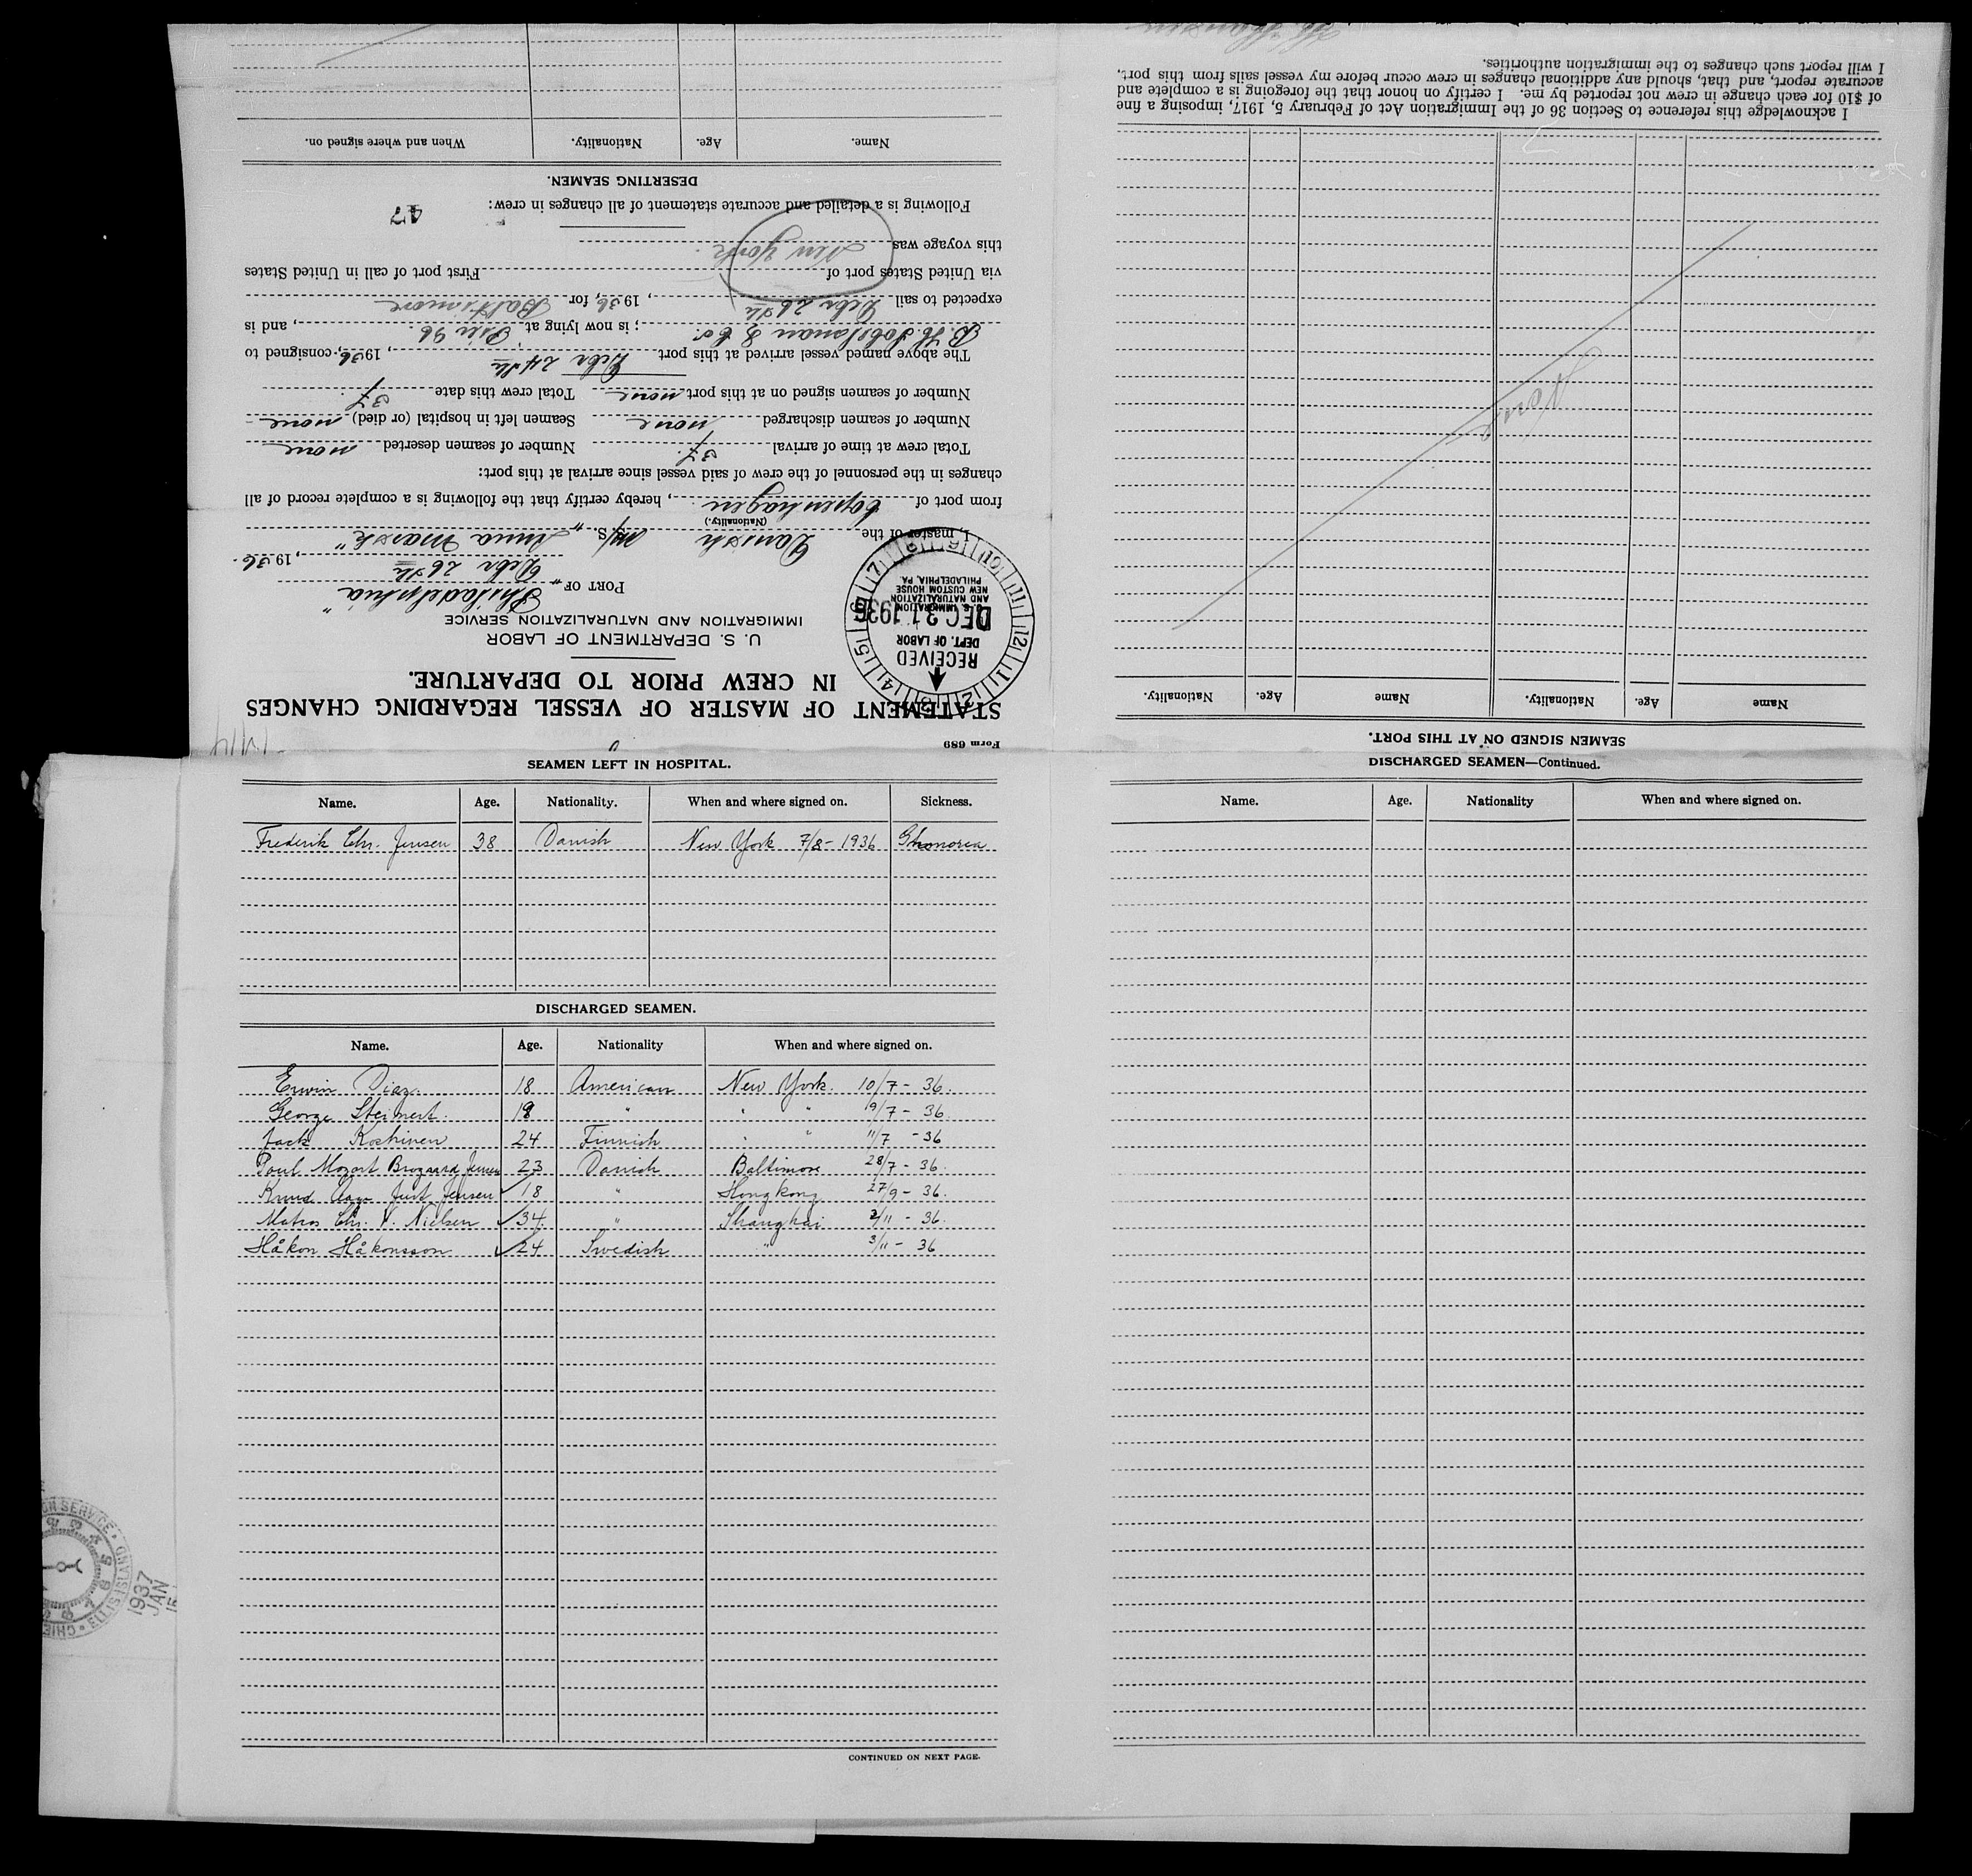 Form 689
STATEMENT OF MASTER OF VESSEL REGARDING CHANGES
IN CREW PRIOR TO DEPARTURE.
U. S. DEPARTMENT OF LABOR
IMMIGRATION AND NATURALIZATION SERVICE
RECEIVED
DEPT. OF LABOR
DEC 31 1936
U. S. IMMIGRATION
AND NATURALIZATION
NEW CUSTOM HOUSE
PHILADELPHIA, PA.
PORT OF "Philadelphia"
Debr 26th, 1936.
I, master of the Danish M/S. "Anna Mærsk"
(Nationality.)
from port of Copenhagen, hereby certify that the following is a complete record of all
changes in the personnel of the crew of said vessel since arrival at this port:
Total crew at time of arrival 37. Number of seamen deserted none
Number of seamen discharged none Seamen left in hospital (or died) none
Number of seamen signed on at this port none Total crew this date 37.
The above named vessel arrived at this port Debr 24th, 1936, consigned to
B. H. Sobelman & Co.; is now lying at Pier 96., and is
expected to sail Debr 26th, 1936, for Baltimore
via United States port of First port of call in United States
this voyage was New York.
47
Following is a detailed and accurate statement of all changes in crew:
DESERTING SEAMEN.
Name. Age. Nationality. When and where signed on.
SEAMEN SIGNED ON AT THIS PORT.
Name Age. Nationality. Name Age. Nationality.
None
I acknowledge this reference to Section 36 of the Immigration Act of February 5, 1917, imposing a fine
of $10 for each change in crew not reported by me. I certify on honor that the foregoing is a complete and
accurate report, and that, should any additional changes in crew occur before my vessel sails from this port,
I will report such changes to the immigration authorities.
SEAMEN LEFT IN HOSPITAL.
Name. Age. Nationality. When and where signed on. Sickness.
Frederik Chr. Jensen 38 Danish New York 7/8-1936 Ghonorea
DISCHARGED SEAMEN.
Name. Age. Nationality When and where signed on.
Erwin Diaz. 18 American New York. 10/7 - 36.
George Steinert. 18 " " " 19/7 - 36.
Jack Koskinen 24 Finnish " " 11/7 - 36
Poul Mozart Brogaard Jensen 23 Danish Baltimore 28/7 - 36.
Knud Aage Just Jensen 18 " Hongkong 27/9 - 36.
Matros Chr. V. Nielsen 34. " Shanghai 2/11 - 36.
Håkon Håkonsson 24 Swedish " 3/11 - 36
CONTINUED ON NEXT PAGE.
DISCHARGED SEAMEN—Continued.
Name. Age. Nationality When and where signed on.
ELLIS ISLAND
1937
JAN